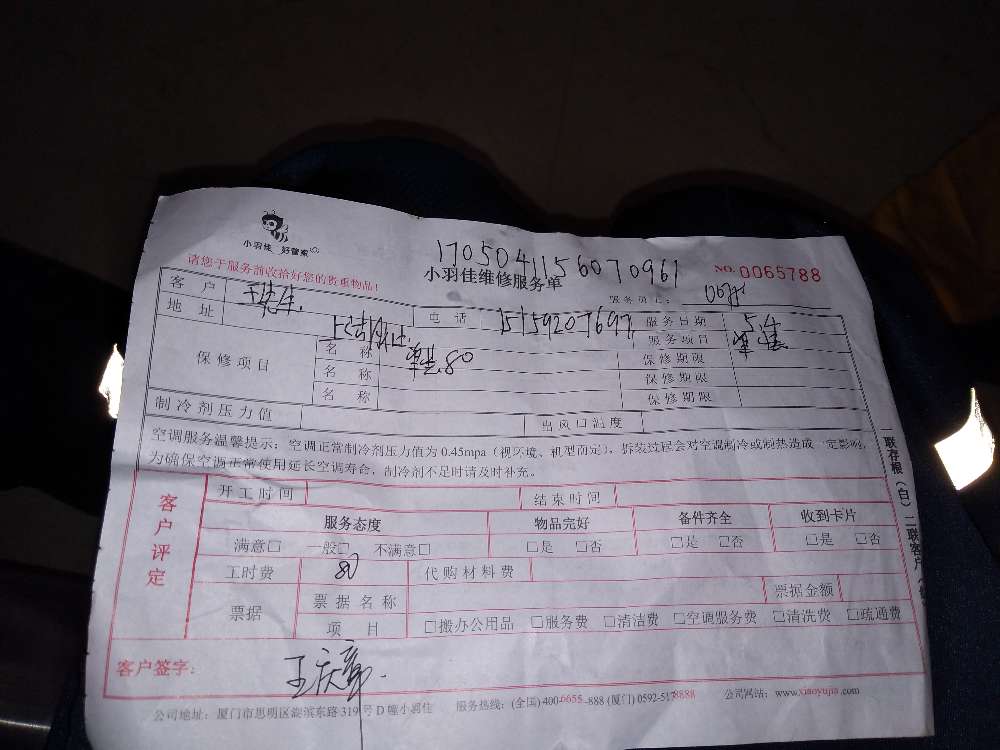 小羽佳 好管家
1705041156070961
请您于服务前收拾好您的贵重物品!
小羽佳维修服务单
NO. 0065788
服务员工:
客户 王先生. 电话 15159207697 服务日期 5.4
地址 服务项目
保修项目 名称 80 保修期限
名称 保修期限
名称 保修期限
制冷剂压力值 出风口温度
空调服务温馨提示:空调正常制冷剂压力值为 0.45mpa(视环境、机型而定),拆装过程会对空调制冷或制热造成一定影响,
为确保空调正常使用延长空调寿命,制冷剂不足时请及时补充。
客户评定
开工时间 结束时间
服务态度 物品完好 备件齐全 收到卡片
满意□ 一般□ 不满意□ □是 □否 □是 □否 □是 □否
工时费 80 代购材料费
票据 票据名称 票据金额
项目 □搬办公用品 □服务费 □清洁费 □空调服务费 □清洗费 □疏通费
客户签字: 王庆章.
公司地址:厦门市思明区湖滨东路 319 号 D 幢小羽佳 服务热线:(全国) 400-6655-888 (厦门) 0592-5178888 公司网站:www.xiaoyujia.com
一联存根(白) 二联客户